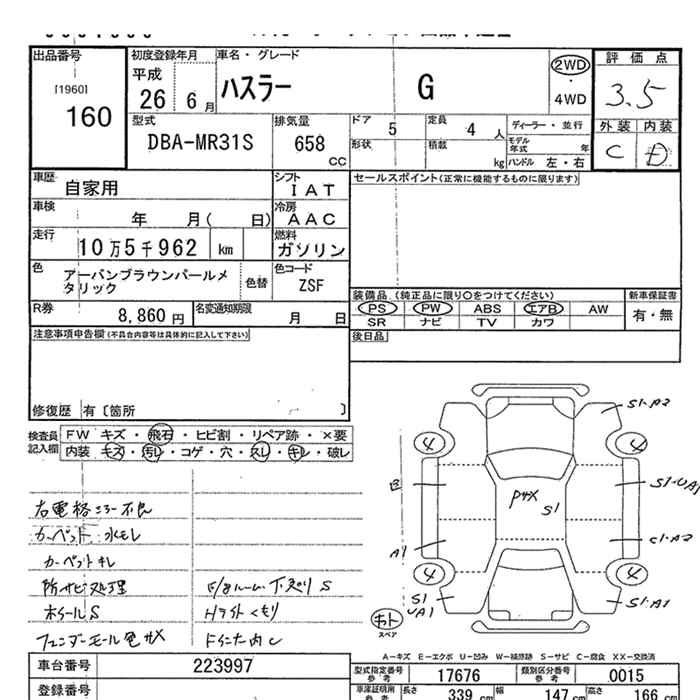 出品番号
[1960]
160
初度登録年月
平成
26 6月
車名・グレード
ハスラー G
2WD
・
4WD
評価点
3.5
外装 内装
C D
型式
DBA-MR31S
排気量
658
CC
ドア 5
定員 4 人
形状
積載 kg
ディーラー・並行
モデル年式 年
ハンドル 左・右
車歴 自家用
シフト
IAT
セールスポイント(正常に機能するものに限ります)
車検 年 月( 日)
冷房
AAC
走行 10万5千962 km
燃料
ガソリン
色 アーバンブラウンパールメタリック
色替
色コード
ZSF
R券 8,860円
名変通知期限 月 日
装備品(純正品に限り○をつけてください)
PS PW ABS エアB AW
SR ナビ TV カワ
新車保証書
有・無
注意事項申告欄(不具合内容等は具体的に記入して下さい)
後日品
修復歴 有〔箇所 〕
検査員記入欄
FW キズ・飛石・ヒビ割・リペア跡・×要
内装 キズ・汚レ・コゲ・穴・スレ・キレ・破レ
右電格ミラー不良
カーペット 水モレ
カーペット キレ
防サビ処理
ホイールS
フェンダーモール色サメ
F/8ルーム・下廻りS
Hライトくもり
S1・A2
4
4
B
S1・UA1
Pサメ
S1
A1
S1・A2
4
4
S1
UA1
S1・A1
キト
スペア
A－キズ E－エクボ U－凹み W－補修跡 S－サビ C－腐食 XX－交換済
車台番号 223997
型式指定番号参考 17676
類別区分番号参考 0015
登録番号
車庫証明用参考 長さ 339 cm 幅 147 cm 高さ 166 cm